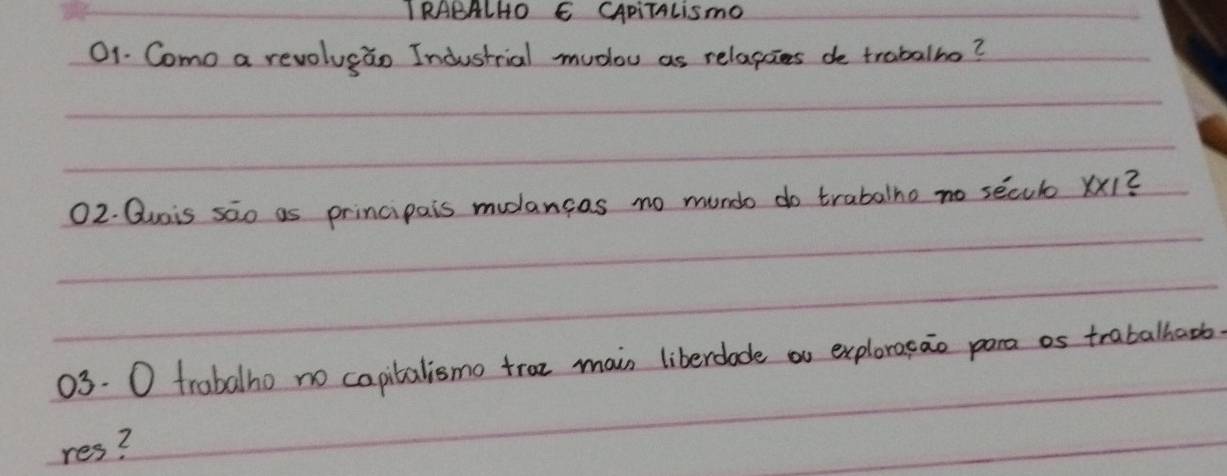 TRABALHO E CAPITALISMO
01. Como a revolução Industrial mudou as relações de trabalho?
02. Quais são as principais mudanças no mundo do trabalho no século XXI?
03. O trabalho no capitalismo traz mais liberdade ou exploração para os trabalhado-
res?